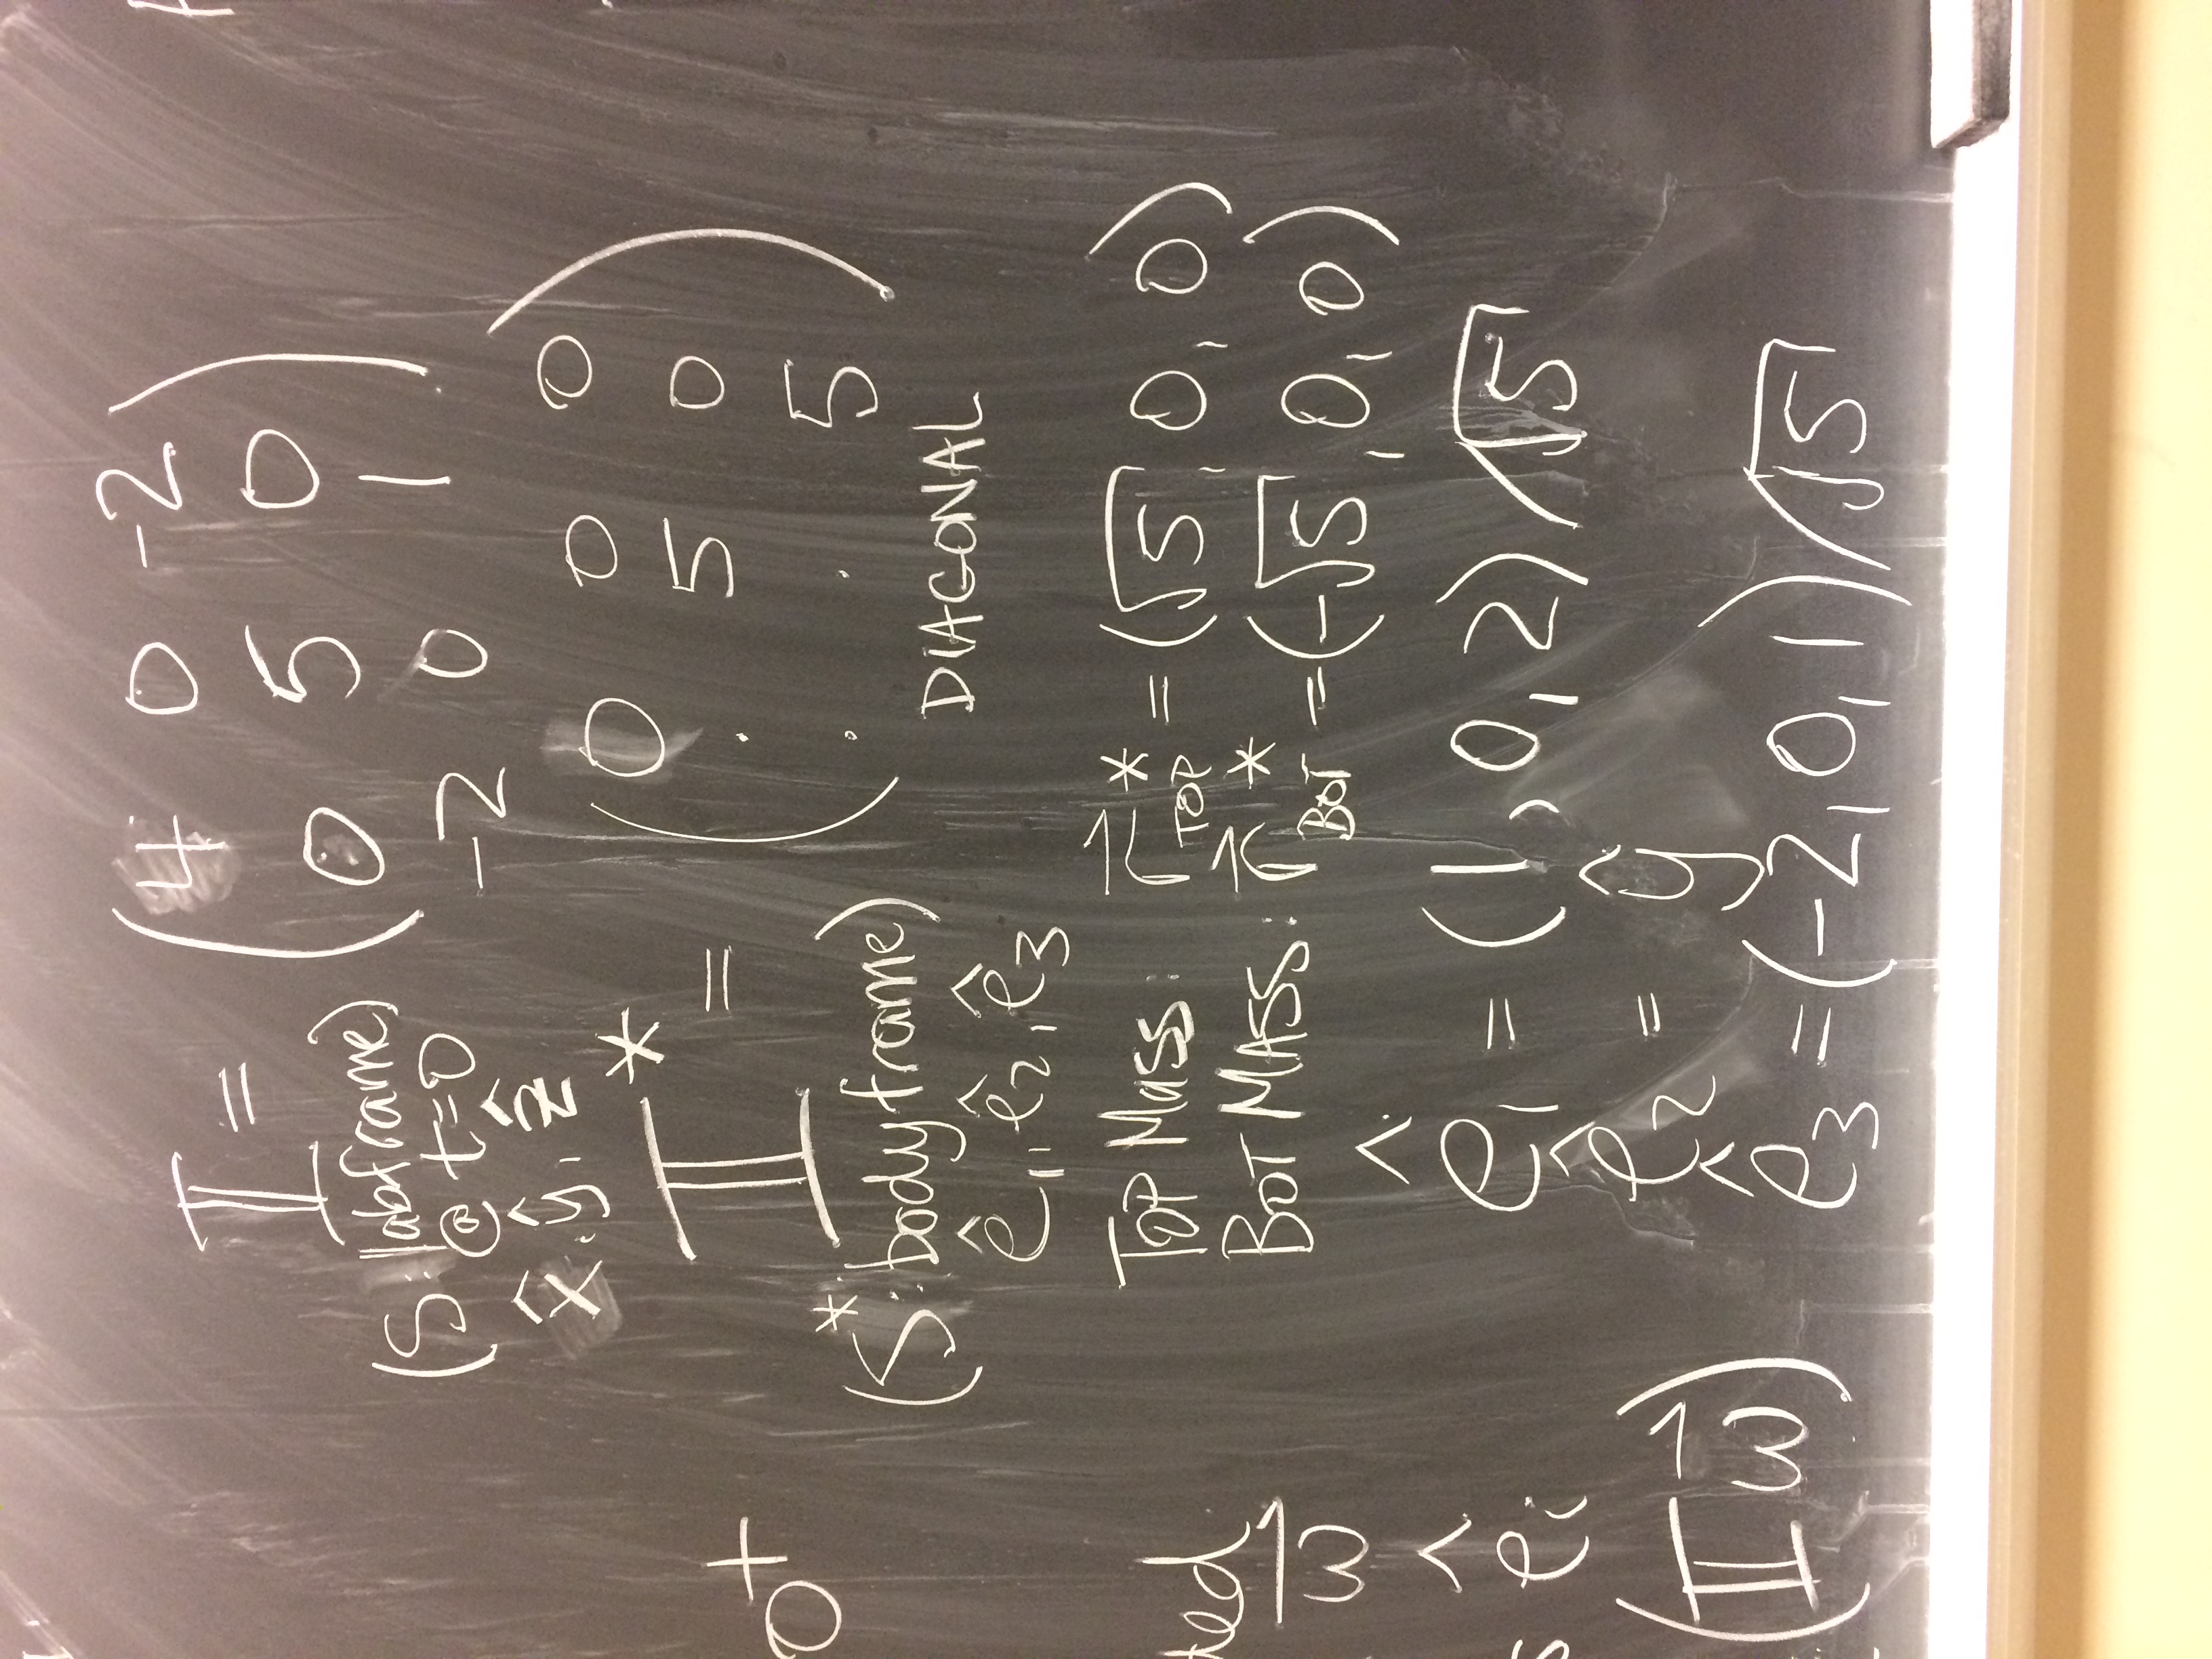 I = ( 4 0 -2 )
( 0 5 0 )
( -2 0 1 )
(S: labframe)
@ t=0
x̂, ŷ, ẑ
I* = ( 0 0 0 )
( . 5 0 )
( . . 5 )
(S*: body frame)
ê1, ê2, ê3
DIAGONAL
TOP MASS: r⃗*TOP = (√5, 0, 0)
BOT MASS: r⃗*BOT = (-√5, 0, 0)
ê1 = (1, 0, 2)/√5
ê2 = ŷ
ê3 = (-2, 0, 1)/√5
0+
ω⃗
êi
(I ω⃗)